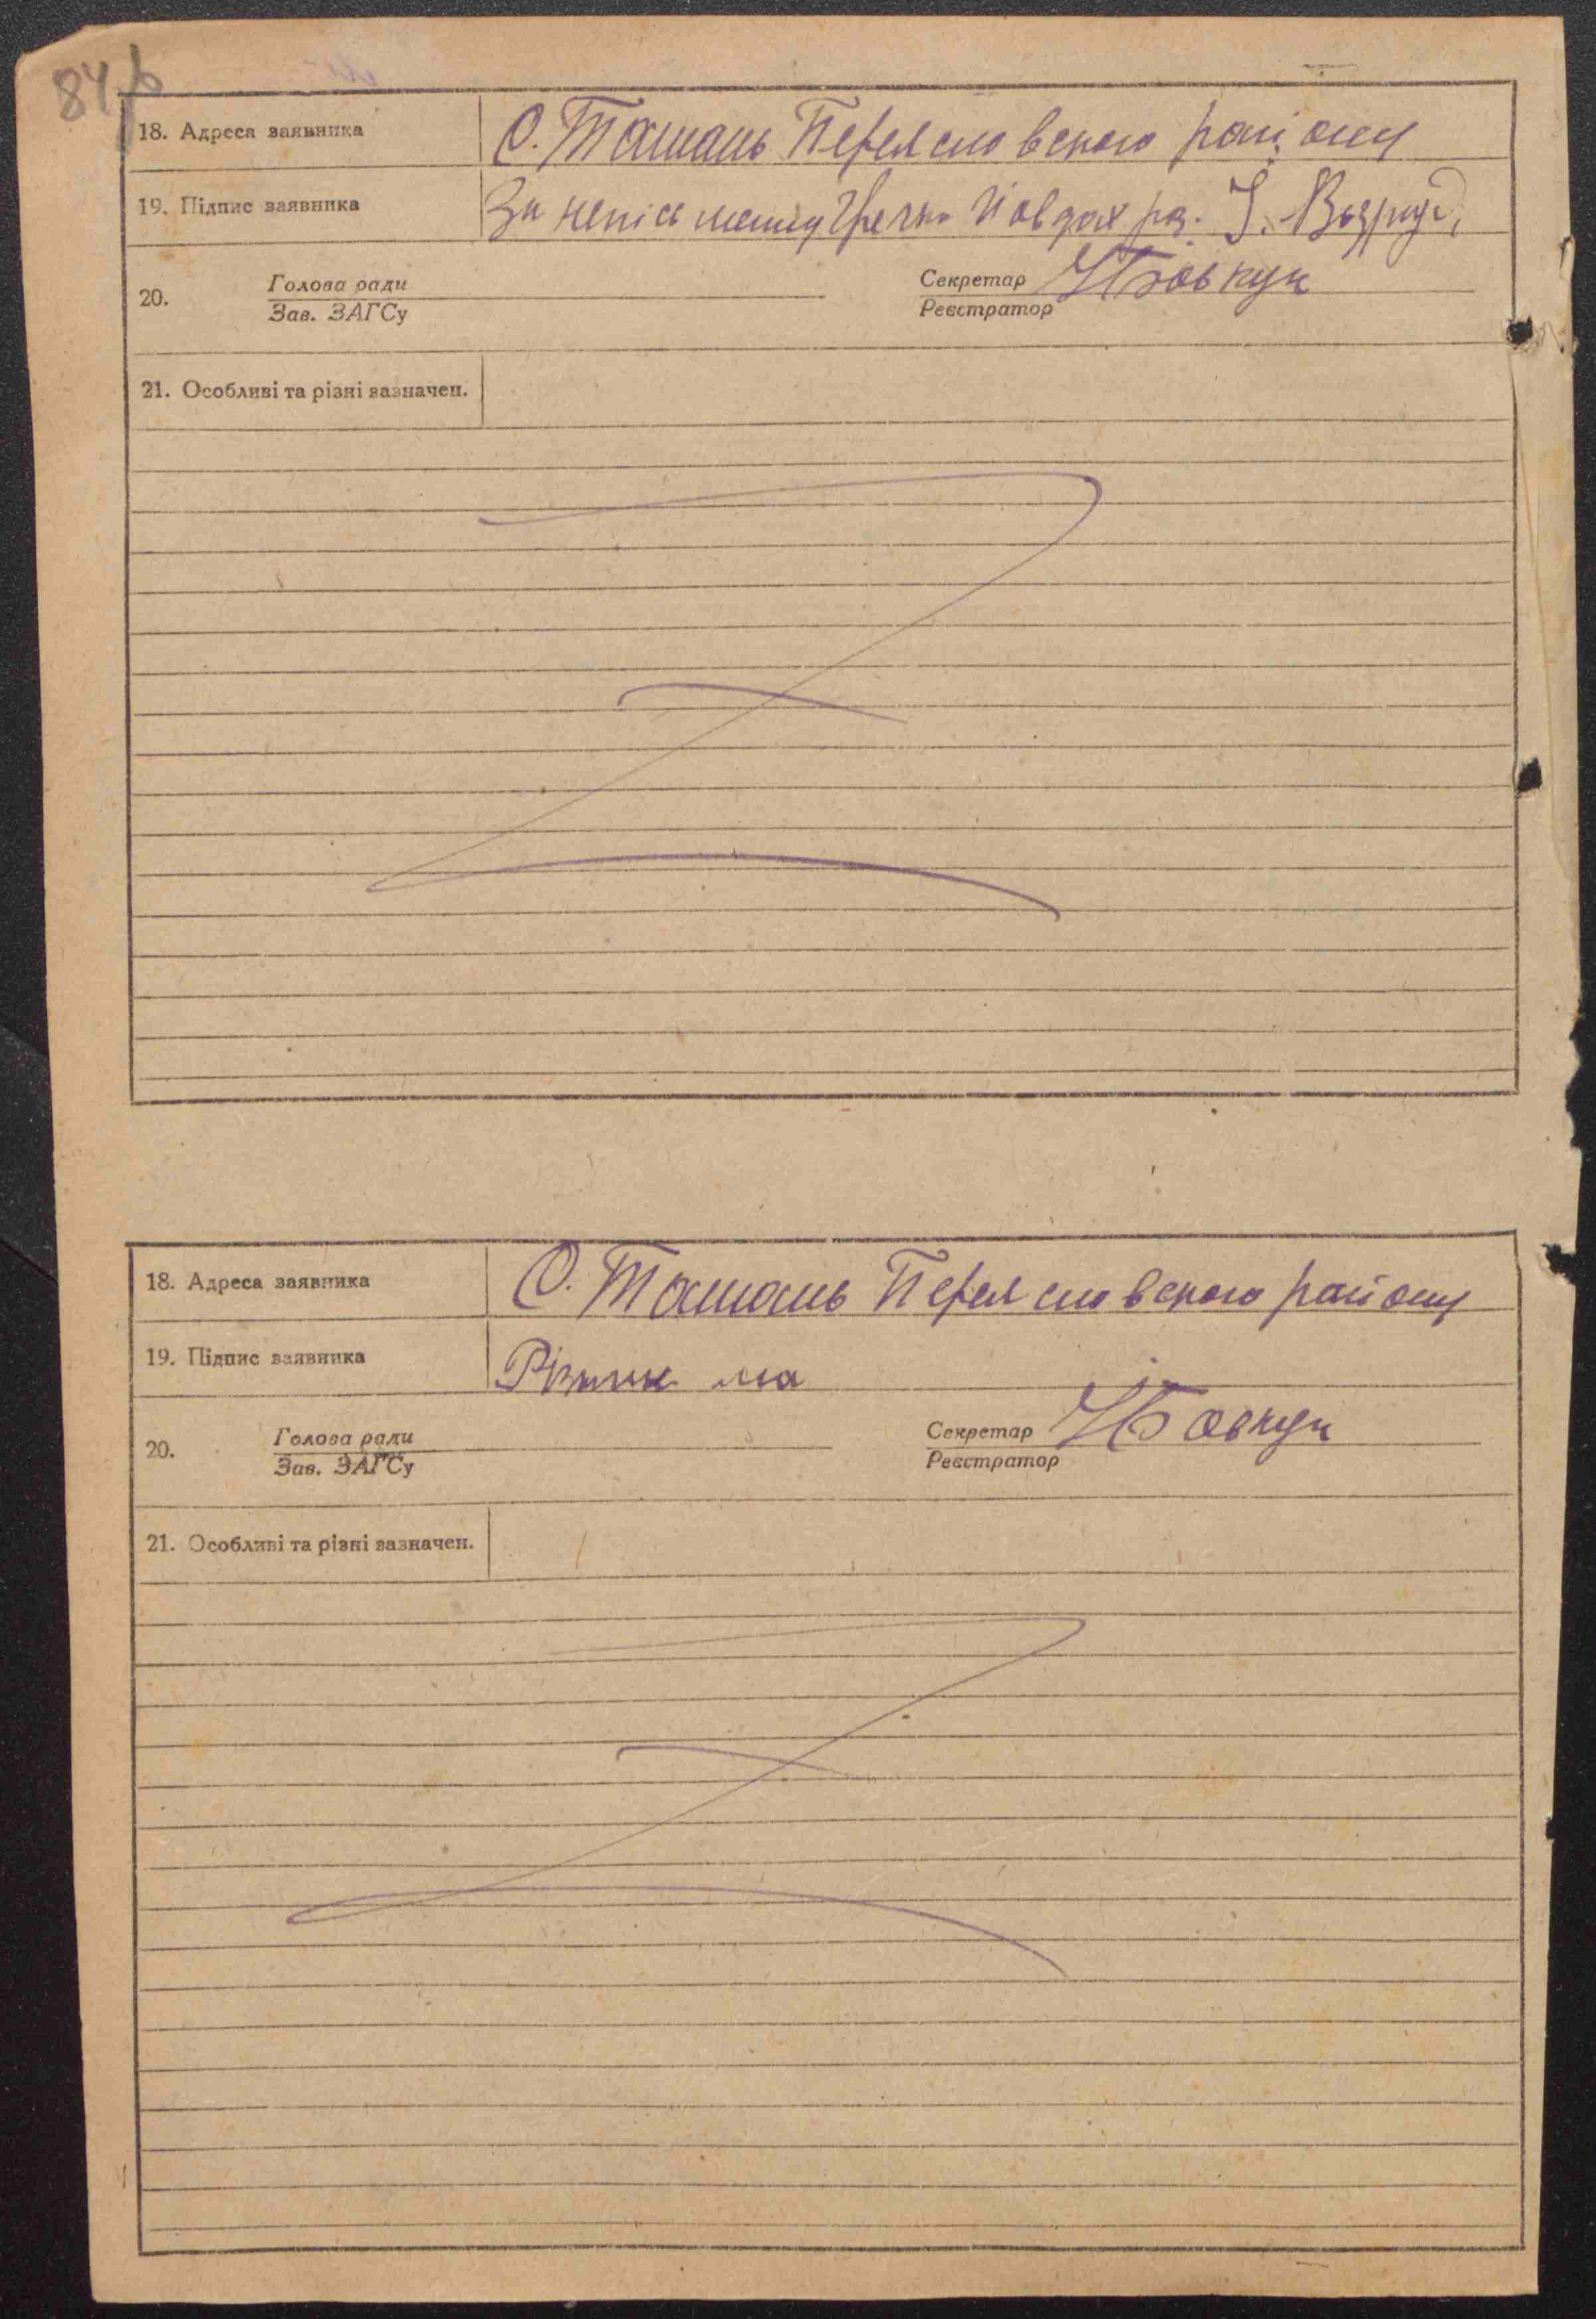 84
18. Адреса заявника С. Ташань Переяславского району
19. Підпис заявника За непісьменну Гречка
20. Голова ради Секретар Бовкун
Зав. ЗАГСу Реєстратор
21. Особливі та різні зазначен.
18. Адреса заявника С. Ташань Переяславского району
19. Підпис заявника
20. Голова ради Секретар Бовкун
Зав. ЗАГСу Реєстратор
21. Особливі та різні зазначен.